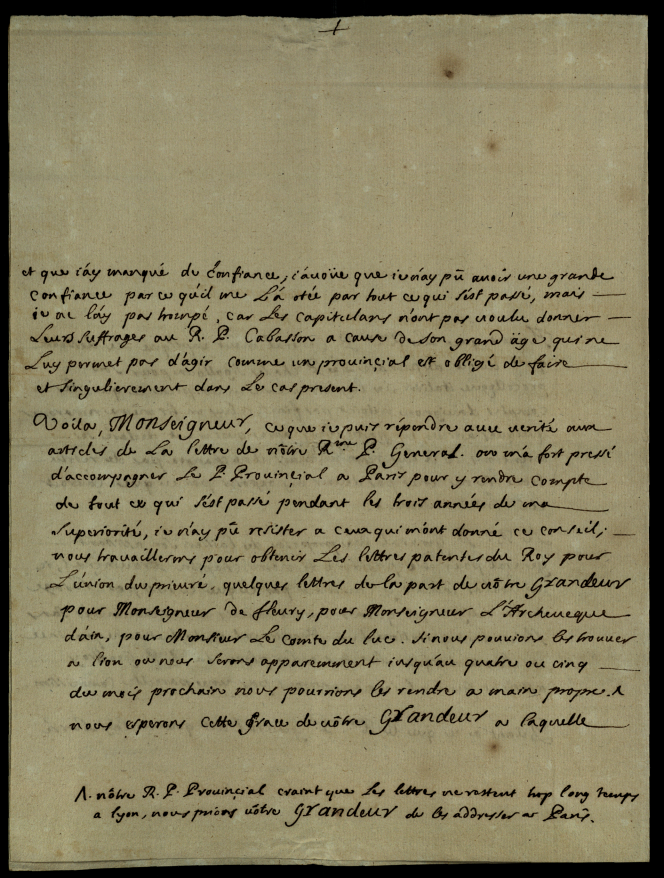 et que i'ay manqué de Confiance, i'auoüe que ie n'ay pû auoir une grande
confiance parce qu'il me L'a otée par tout ce qui s'est passé, mais
ie ne l'ay pas trompé, car Les Capitulans n'ont pas voulu donner
Leurs suffrages au R. P. Cabasson a cause de son grand âge qui ne
Luy permet pas d'agir comme un provinçial est obligé de faire
et singulierement dans Le cas present.
Voila, Monseigneur, ce que ie puis répondre avec verité aux
articles de La lettre de nôtre R.me P. General. on m'a fort pressé
d'accompagner Le P. Provinçial a Paris pour y rendre compte
de tout ce qui s'est passé pendant les trois années de ma
superiorité, ie n'ay pû resister a ceux qui m'ont donné ce conseil;
nous travaillerons pour obtenir Les lettres patentes du Roy pour
L'union du prieuré. quelques lettres de la part de vôtre Grandeur
pour Monseigneur de fleury, pour Monseigneur L'Archeueque
d'aix, pour Monsieur Le comte du luc. si nous pouvions les trouver
a lion ou nous serons apparemment iusqu'au quatre ou cinq
du mois prochain nous pourrions les rendre a main propre. Λ
nous esperons cette grace de vôtre Grandeur a laquelle
Λ. nôtre R. P. Provinçial craint que Les lettres ne restent trop long temps
a lyon, nous prions vôtre Grandeur de les addresser a Paris.